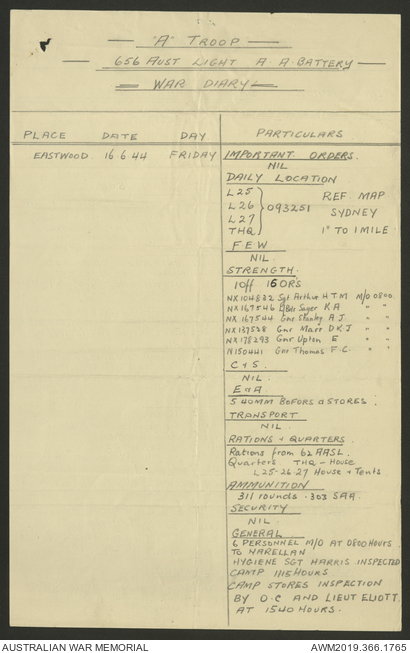 "A" TROOP
656 AUST LIGHT A A BATTERY
WAR DIARY
PLACE DATE DAY PARTICULARS
EASTWOOD 16 6 44 FRIDAY IMPORTANT ORDERS.
NIL
DAILY LOCATION
L25 REF. MAP
L26 093251 SYDNEY
L27 1" TO 1 MILE
THQ
F E W
NIL.
STRENGTH.
1 off 16 ORS
NX104832 Sgt Arthur H.T.M M/O 0800
NX167546 L/Bdr Sager K A " "
NX167544 Gnr Stanley A J. " "
NX137528 Gnr Marr D K J " "
NX178293 Gnr Upton E " "
N150441 Gnr Thomas F.C. " "
C & S.
NIL.
E & A.
5 40MM BOFORS & STORES.
TRANSPORT
NIL.
RATIONS & QUARTERS.
Rations from 62 AASL.
Quarters THQ - House
L25-26-27 House & Tents
AMMUNITION
311 rounds .303 SAA.
SECURITY
NIL.
GENERAL
6 PERSONNEL M/O AT 0800 HOURS
TO NARELLAN
HYGIENE SGT HARRIS INSPECTED
CAMP 1115 HOURS
CAMP STORES INSPECTION
BY O.C AND LIEUT ELIOTT.
AT 1540 HOURS.
AUSTRALIAN WAR MEMORIAL AWM2019.366.1765